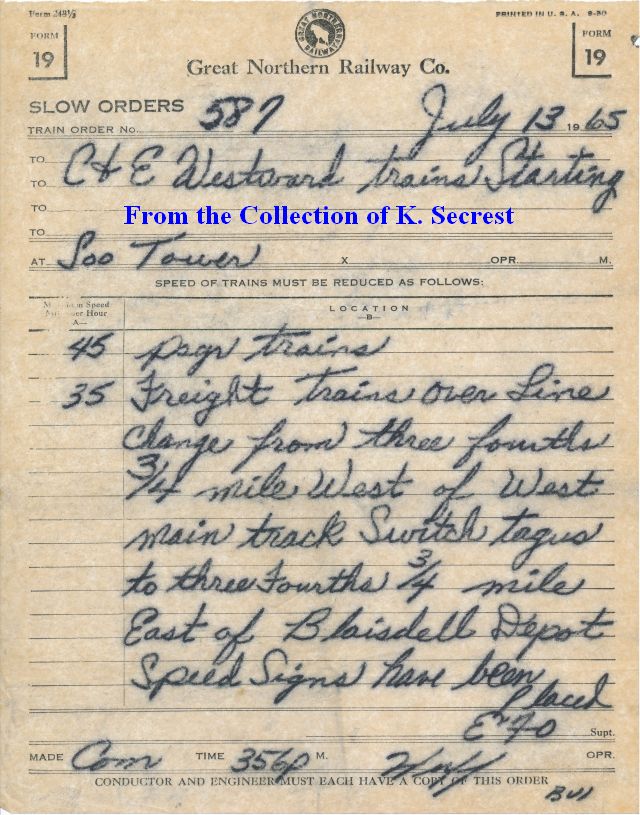 Form 248½
PRINTED IN U. S. A. 8-50
FORM
19
GREAT NORTHERN RAILWAY
FORM
19
Great Northern Railway Co.
SLOW ORDERS
TRAIN ORDER No. 587 July 13 1965
TO
TO C & E Westward trains Starting
TO
From the Collection of K. Secrest
TO
AT Soo Tower X OPR. M.
SPEED OF TRAINS MUST BE REDUCED AS FOLLOWS:
Speed
per Hour
A—
LOCATION
—B—
45 psgr trains
35 Freight trains over Line
Change from three fourths
3/4 mile West of West
main track Switch tagus
to three Fourths 3/4 mile
East of Blaisdell Depot
Speed Signs have been
placed
Supt.
MADE Com TIME 356p M. OPR.
CONDUCTOR AND ENGINEER MUST EACH HAVE A COPY OF THIS ORDER